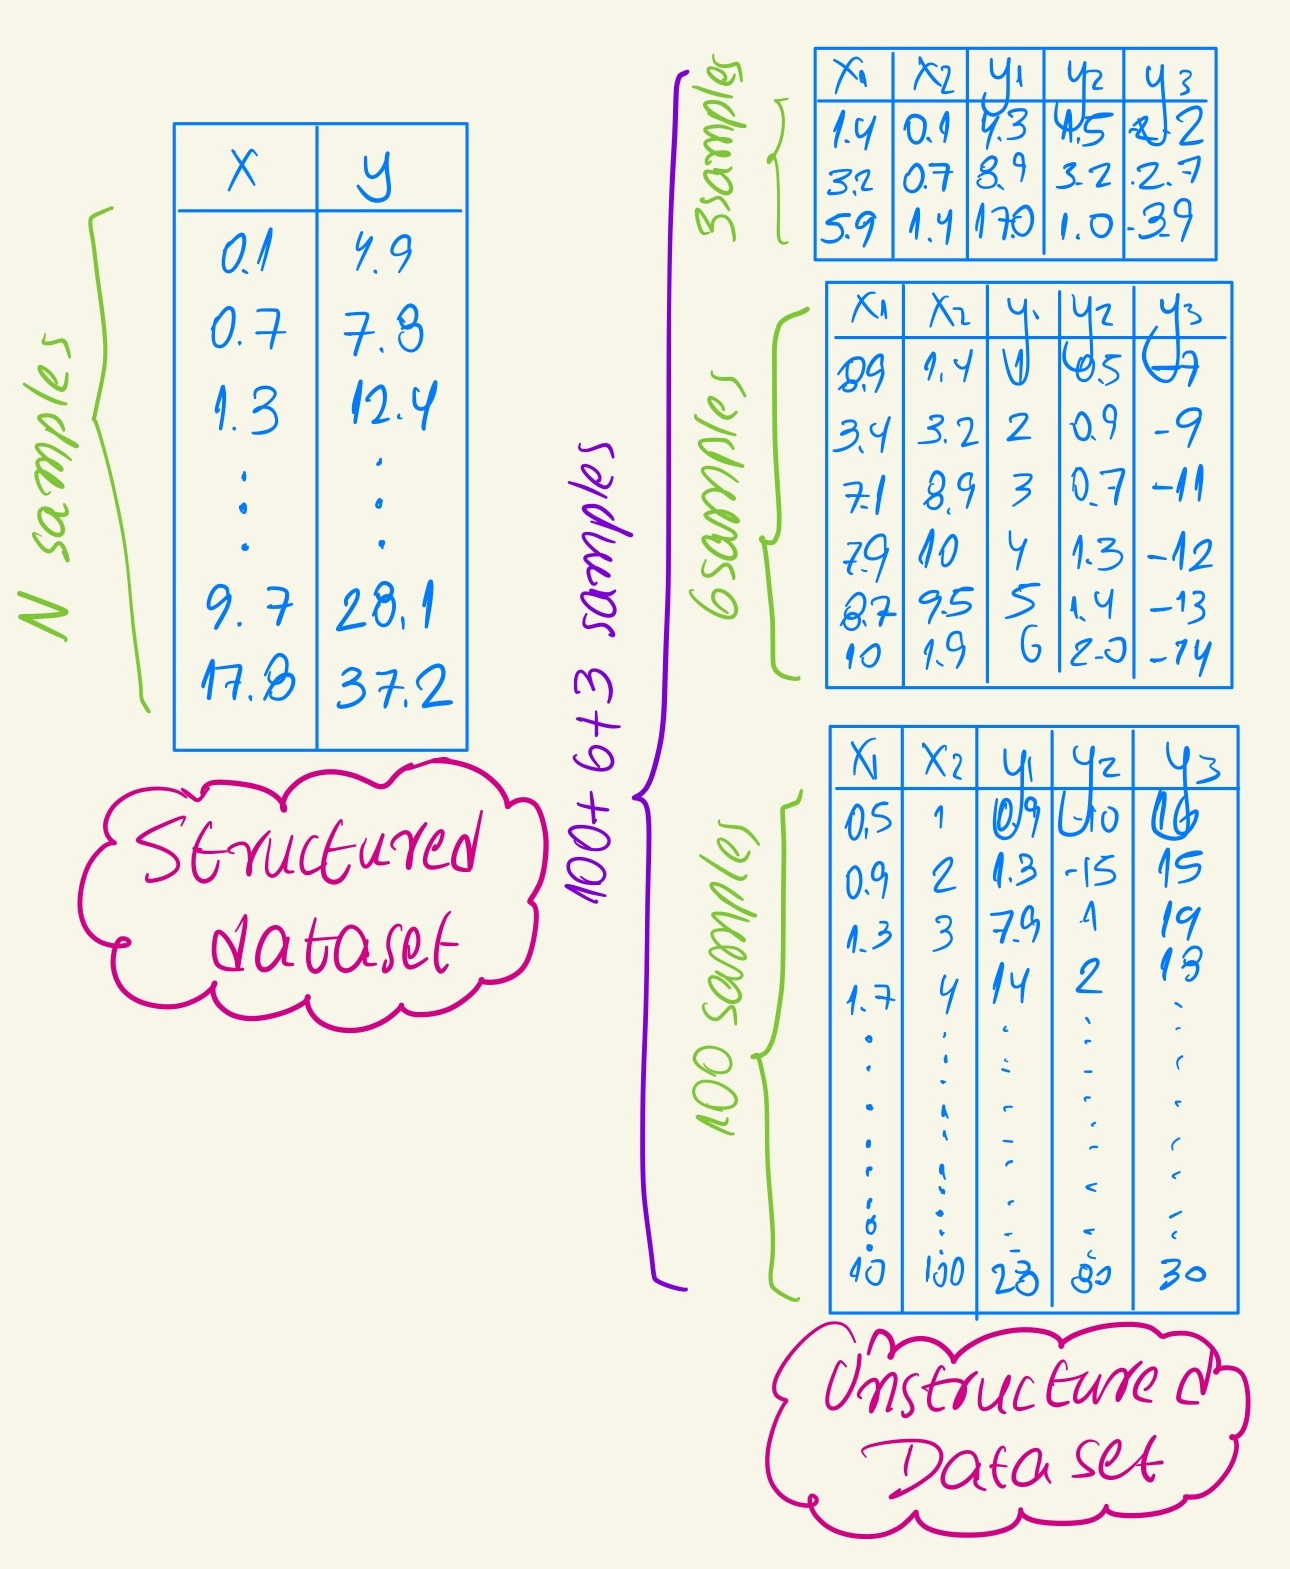 N samples
x y
0.1 4.9
0.7 7.8
1.3 12.4
9.7 28.1
17.8 37.2
Structured
dataset
100+6+3 samples
3 samples
x1 x2 y1 y2 y3
1.4 0.1 4.3 1.5
3.2 0.7 8.9 3.2 -2.7
5.9 1.4 17.0 1.0 -3.9
6 samples
x1 x2 y1 y2 y3
0.9 1.4 1 0.5 -7
3.4 3.2 2 0.9 -9
7.1 8.9 3 0.7 -11
7.9 10 4 1.3 -12
8.7 9.5 5 1.4 -13
10 1.9 6 2.0 -14
100 samples
x1 x2 y1 y2 y3
0.5 1 0.9 -10
0.9 2 1.3 -15 15
1.3 3 7.9 1 19
1.7 4 14 2 13
10 100 28 80 30
Unstructured
Dataset